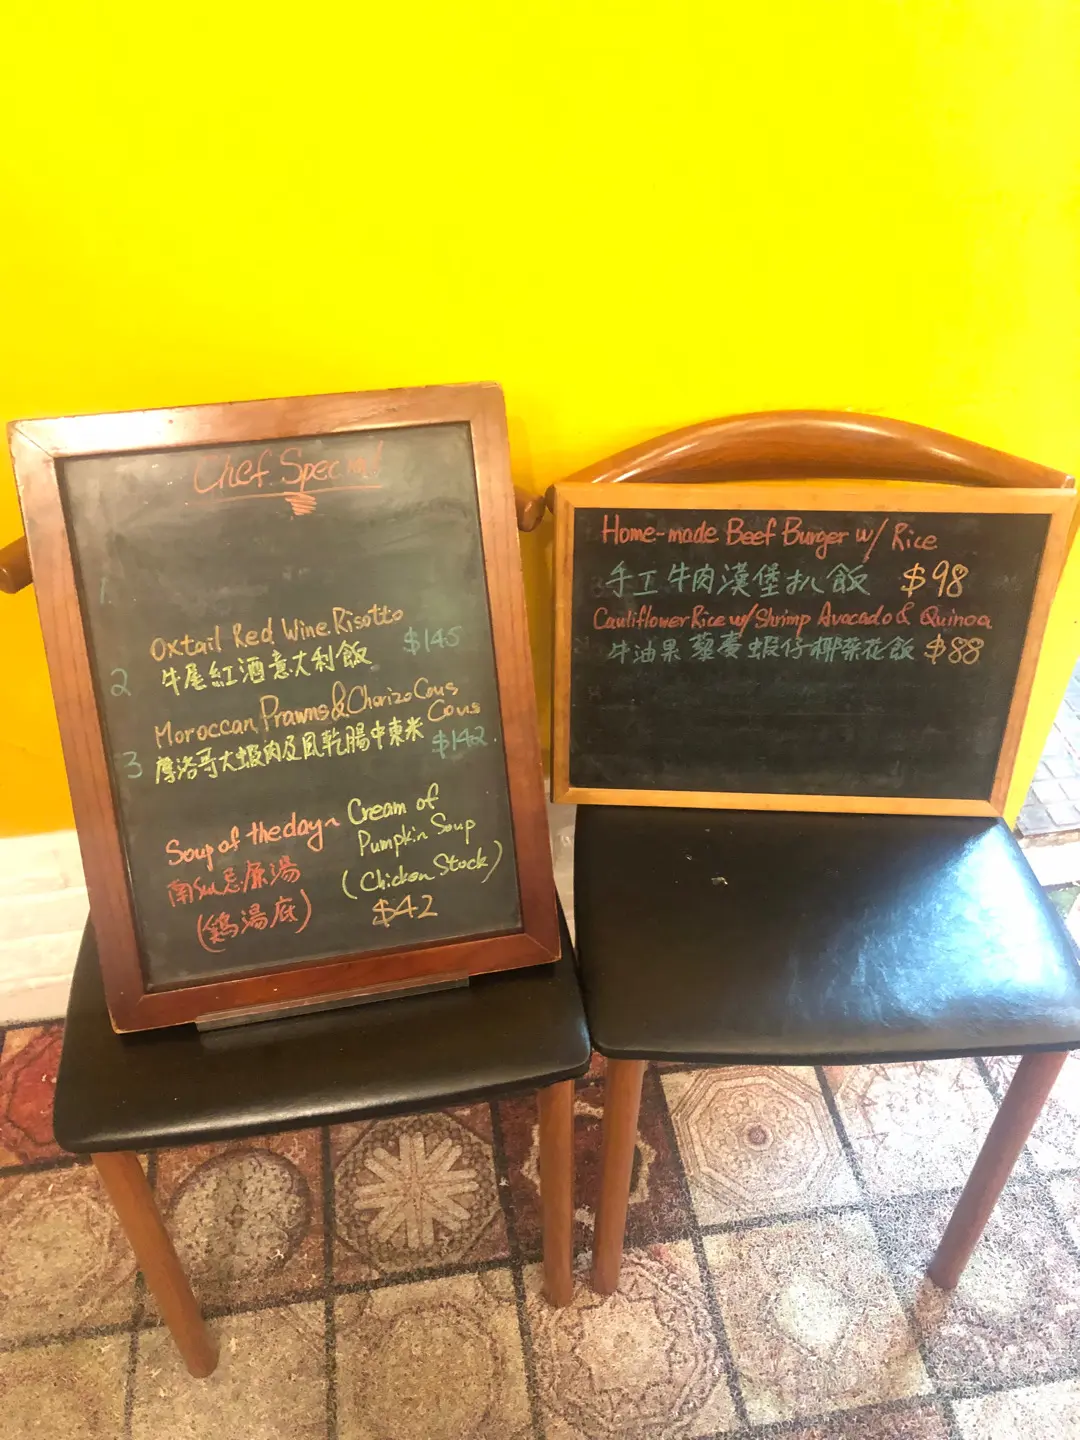 Chef Special
1.
Oxtail Red Wine Risotto
$145
2 牛尾紅酒意大利飯
Moroccan Prawns & Chorizo Cous
Cous
3 摩洛哥大蝦肉及風乾腸中東米 $142.
Soup of the day~
南瓜忌廉湯
(鷄湯底)
Cream of
Pumpkin Soup
(Chicken Stock)
$42
Home-made Beef Burger w/ Rice
手工牛肉漢堡扒飯 $98
Cauliflower Rice w/ Shrimp Avocado & Quinoa
牛油果藜麥蝦仔椰菜花飯 $88